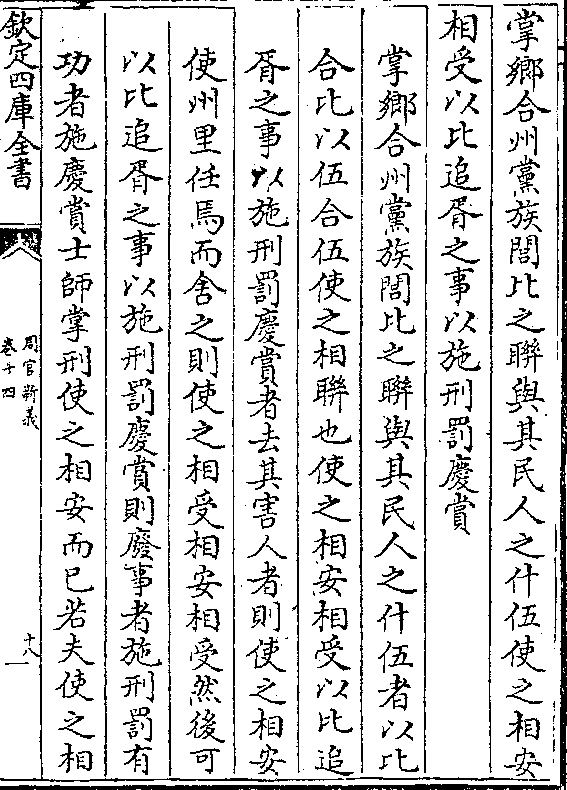 掌鄉合州黨族閭比之聯與其民人之什伍使之相安
相受以比追胥之事以施刑罰慶賞
掌鄉合州黨族閭比之聯與其民人之什伍者以比
合比以伍合伍使之相聯也使之相安相受以比追
胥之事以施刑罰慶賞者去其害人者則使之相安
使州里任焉而舍之則使之相受相安相受然後可
以比追胥之事以施刑罰慶賞則廢事者施刑罰有
功者施慶賞士師掌刑使之相安而已若夫使之相
欽定四庫全書
周官新義
卷十四
十八